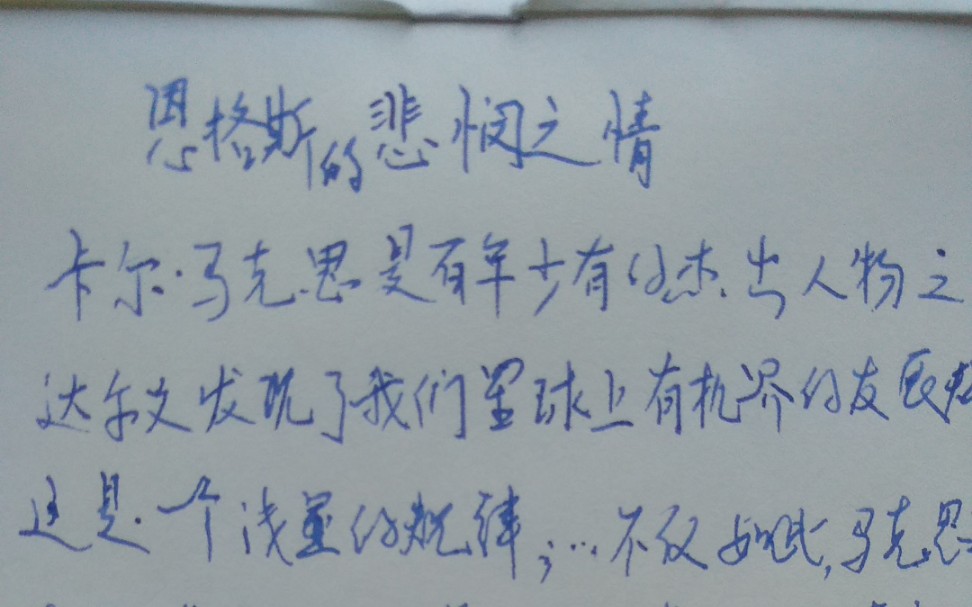 恩格斯的悲悯之情
卡尔·马克思是百年少有的杰出人物之
达尔文发现了我们星球上有机界的发展
这是一个浅显的规律;…不仅如此,马克思